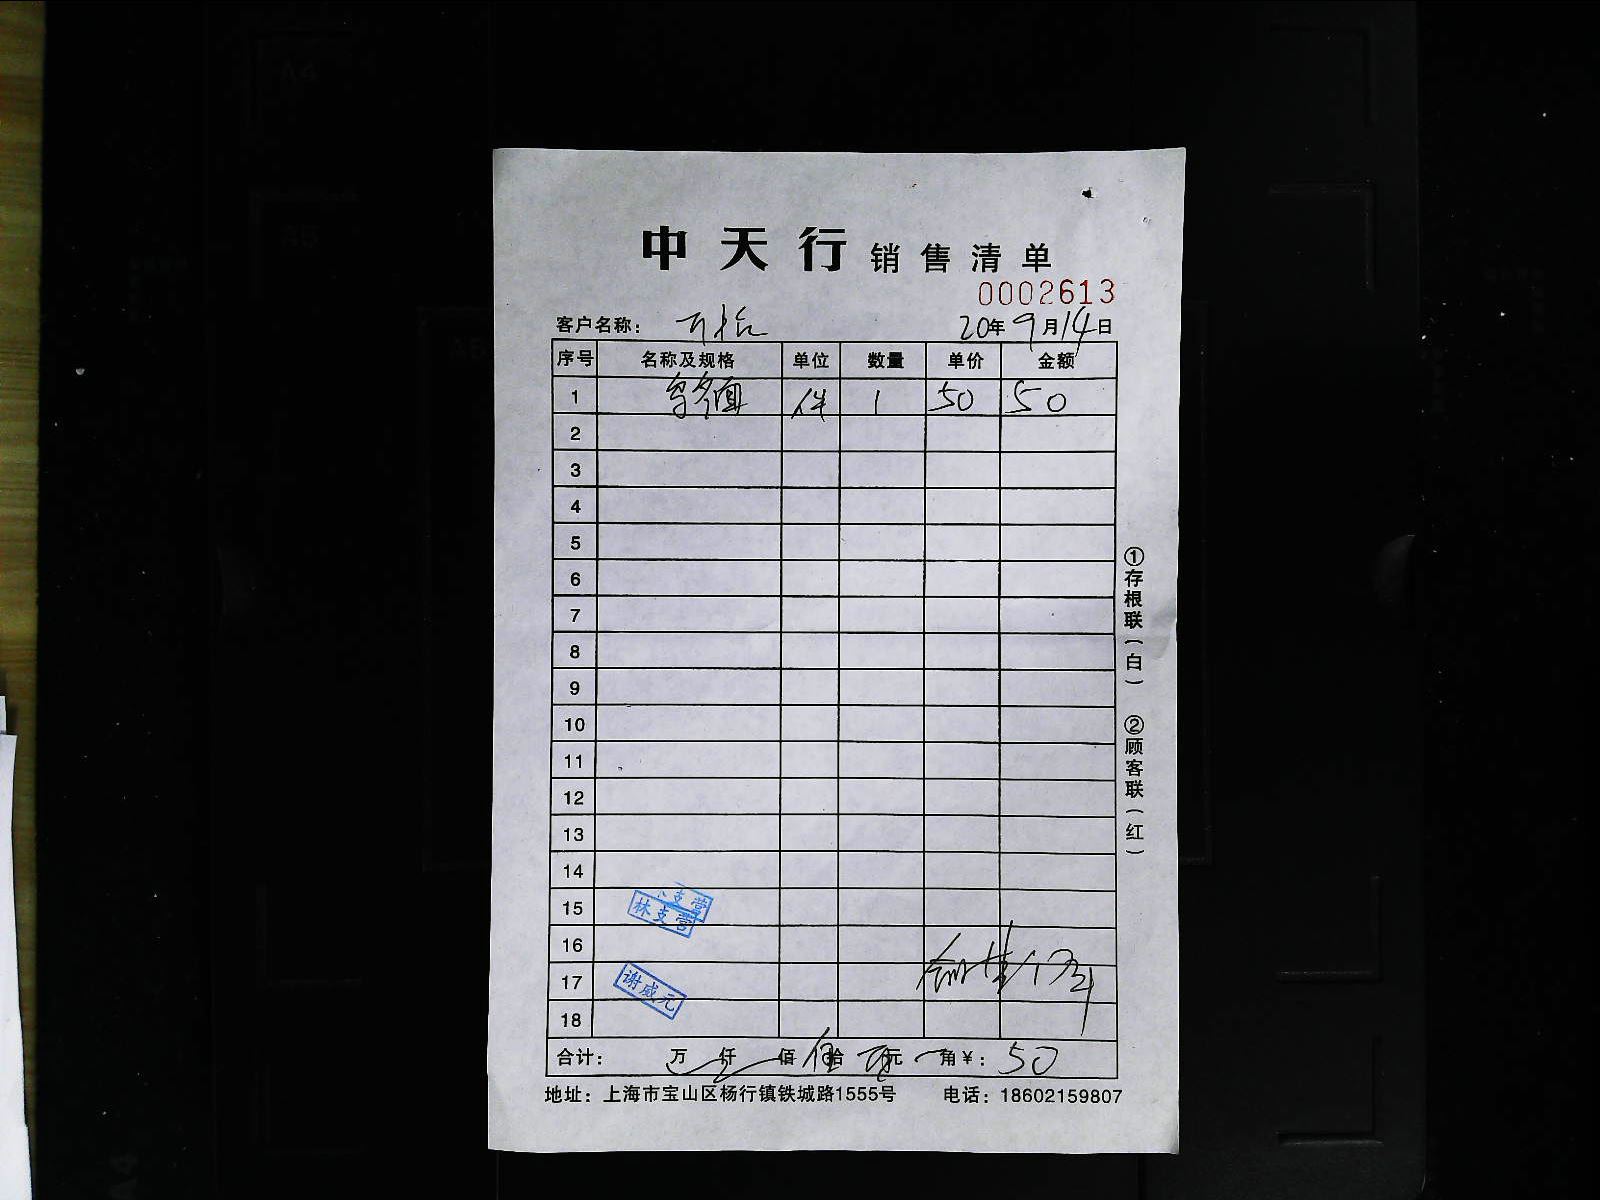 中天行销售清单
0002613
客户名称： 20年9月14日
序号 名称及规格 单位 数量 单价 金额
1 件 1 50 50
2
3
4
5
6
7
8
9
10
11
12
13
14
15
16
17
18
林支营
林支营
谢威元
合计： 万 仟 佰 伍拾 元 角￥：50
地址：上海市宝山区杨行镇铁城路1555号 电话：18602159807
①存根联（白） ②顾客联（红）